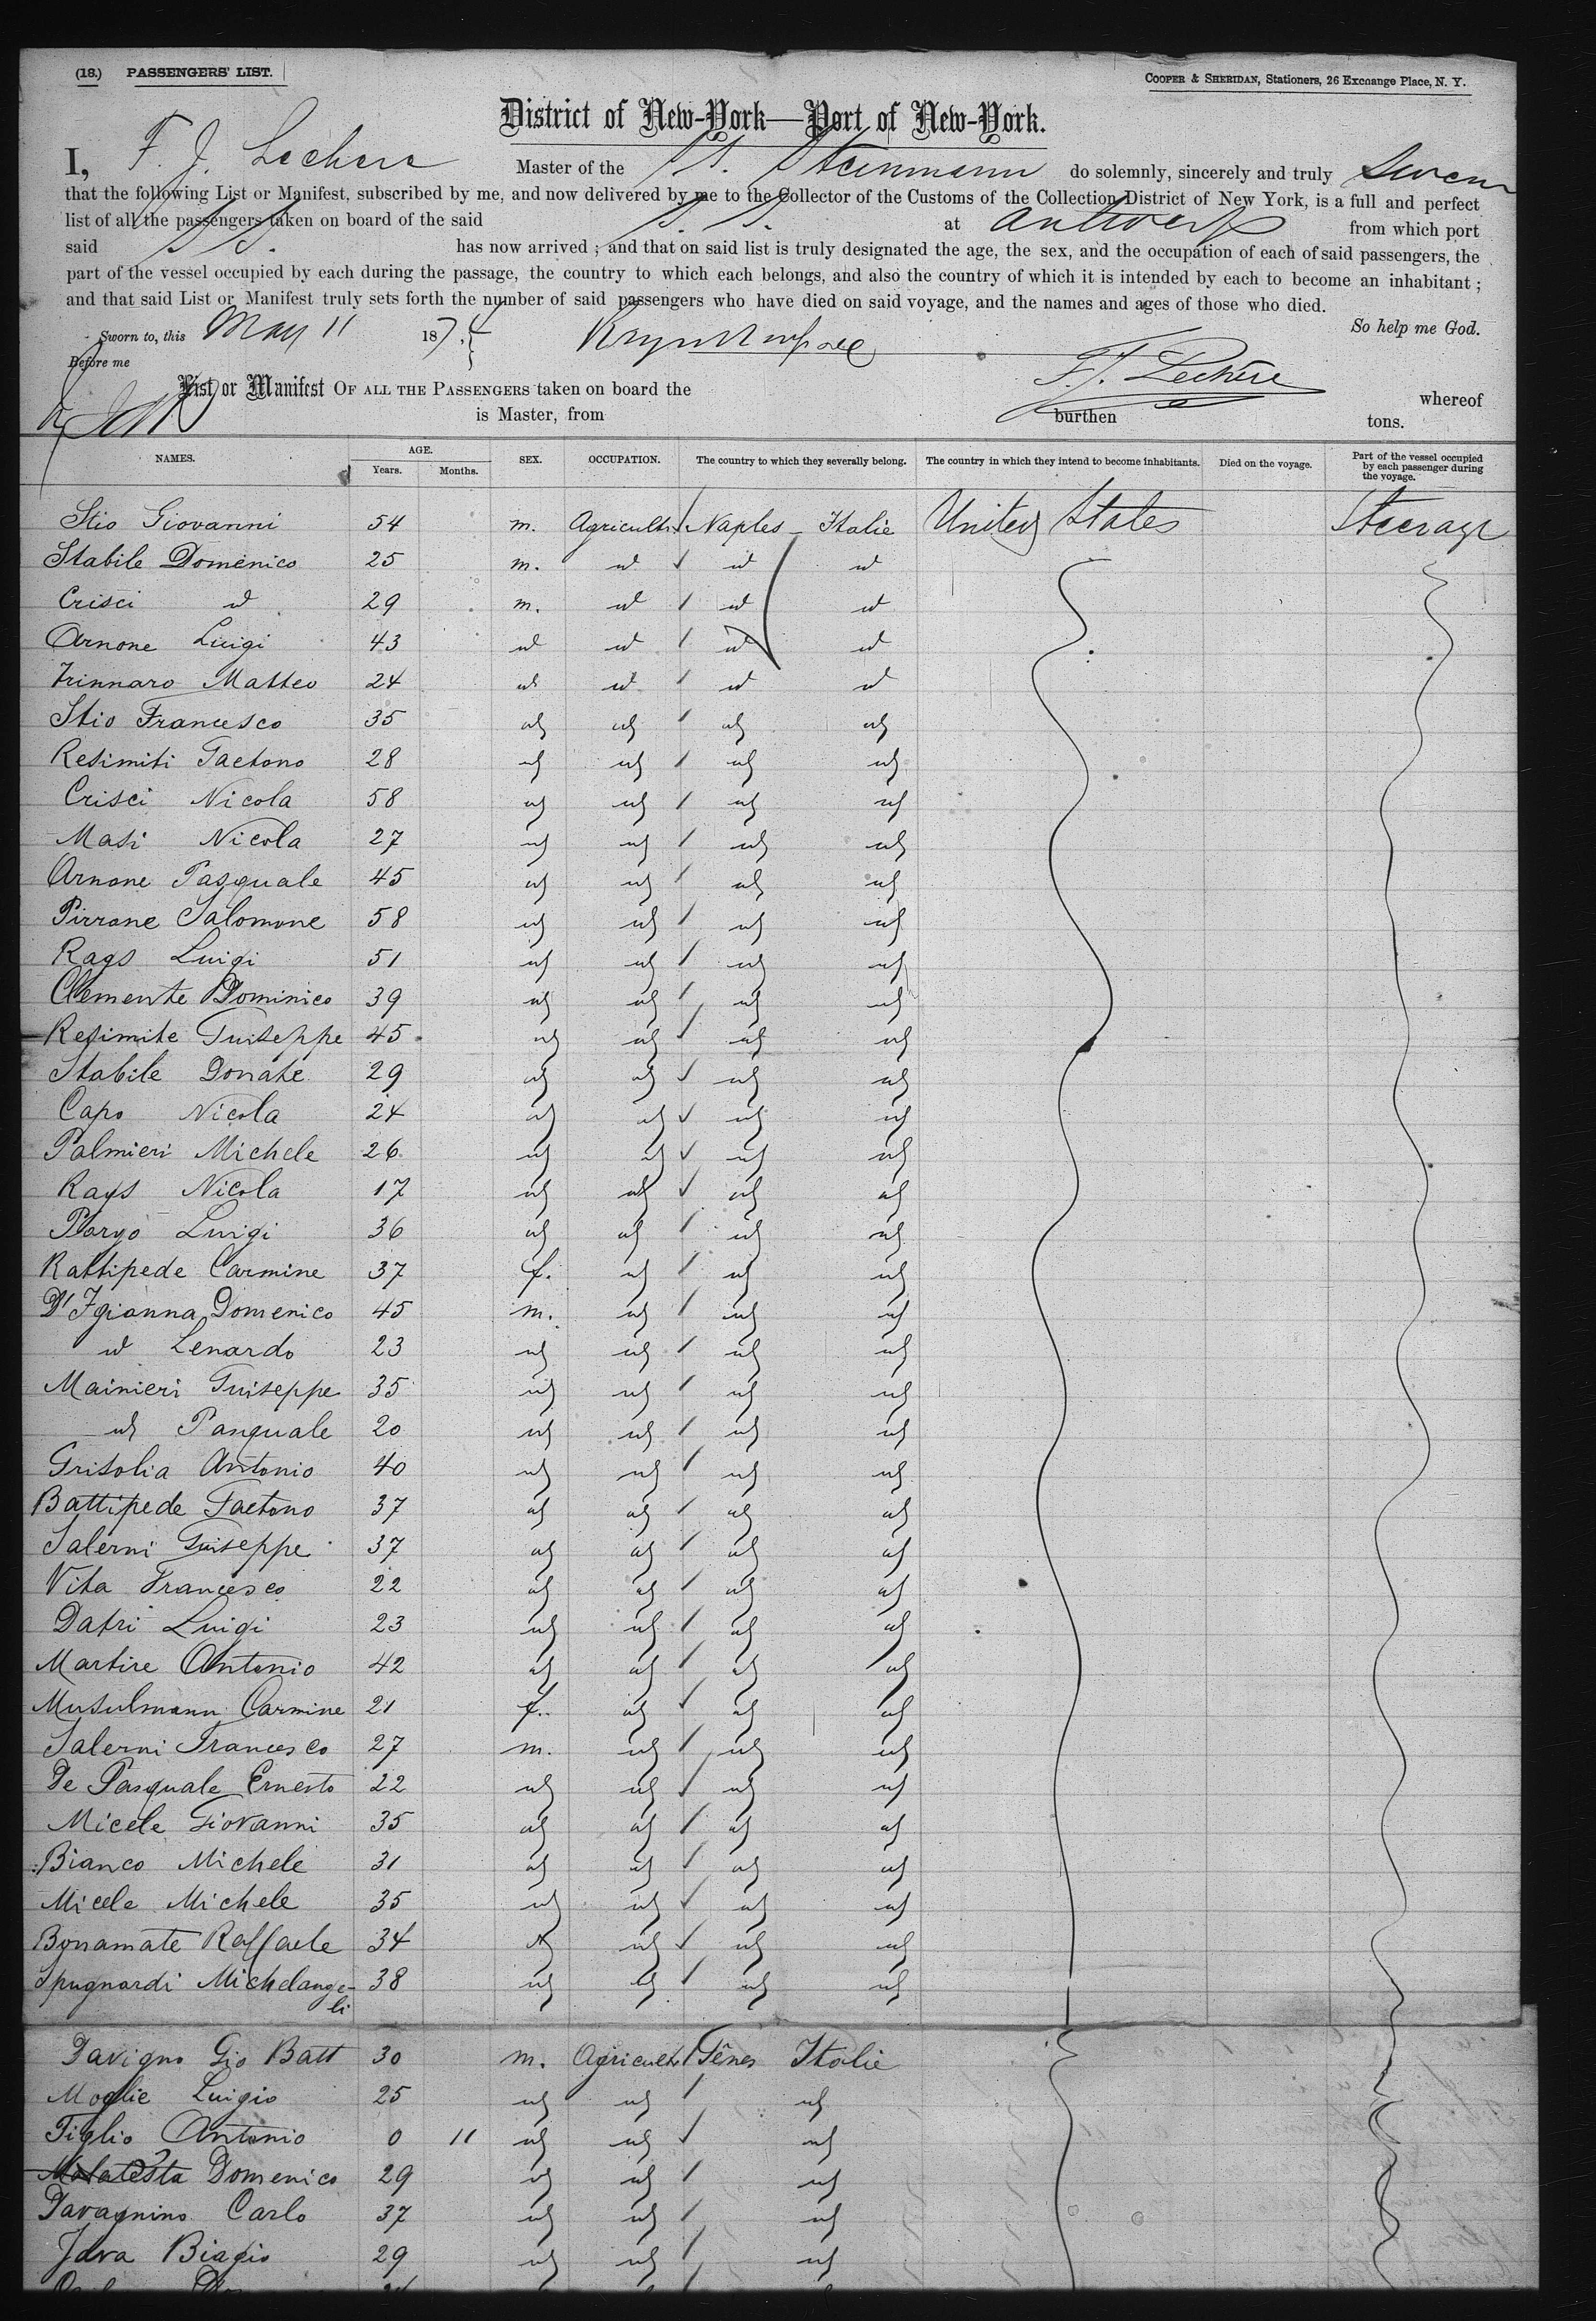 (18.) PASSENGERS' LIST.
COOPER & SHERIDAN, Stationers, 26 Exchange Place, N. Y.
District of New-York—Port of New-York.
I, F. J. Lechere Master of the S. S. Steinmann do solemnly, sincerely and truly Swear
that the following List or Manifest, subscribed by me, and now delivered by me to the Collector of the Customs of the Collection District of New York, is a full and perfect
list of all the passengers taken on board of the said S. S. at Antwerp from which port
said S S. has now arrived ; and that on said list is truly designated the age, the sex, and the occupation of each of said passengers, the
part of the vessel occupied by each during the passage, the country to which each belongs, and also the country of which it is intended by each to become an inhabitant ;
and that said List or Manifest truly sets forth the number of said passengers who have died on said voyage, and the names and ages of those who died.
Sworn to, this May 11 1874 So help me God.
Before me F. J. Lechere
List or Manifest OF ALL THE PASSENGERS taken on board the whereof
is Master, from burthen tons.
NAMES. AGE. Years. Months. SEX. OCCUPATION. The country to which they severally belong. The country in which they intend to become inhabitants. Died on the voyage. Part of the vessel occupied by each passenger during the voyage.
Stio Giovanni 54 m. Agricult. Naples Italie United States Steerage
Stabile Domenico 25 m. id id id
Crisci id 29 m. id id id
Arnone Luigi 43 id id id id
Trinnaro Matteo 24 id id id id
Stio Francesco 35 id id id id
Resimiti Gaetono 28 id id id id
Crisci Nicola 58 id id id id
Masi Nicola 27 id id id id
Arnone Pasquale 45 id id id id
Pirrone Salomone 58 id id id id
Rags Luigi 51 id id id id
Clemente Dominico 39 id id id id
Resimite Guiseppe 45 id id id id
Stabile Donate 29 id id id id
Capo Nicola 24 id id id id
Palmieri Michele 26 id id id id
Rays Nicola 17 id id id id
Porgo Luigi 36 id id id id
Rattipede Carmine 37 f. id id id
D'Igianna Domenico 45 m. id id id
id Lenardo 23 id id id id
Mainieri Guiseppe 35 id id id id
id Pasquale 20 id id id id
Grisolia Antonio 40 id id id id
Battipede Gaetono 37 id id id id
Salerni Guiseppe 37 id id id id
Vita Francesco 22 id id id id
Datri Luigi 23 id id id id
Martire Antonio 42 id id id id
Musulmann Carmine 21 f. id id id
Salerni Francesco 27 m. id id id
De Pasquale Ernesto 22 id id id id
Micele Giovanni 35 id id id id
Bianco Michele 31 id id id id
Micele Michele 35 id id id id
Bonamate Raffaele 34 id id id id
Spugnardi Michelange- 38 id id id id
li
Davigno Gio Batt 30 m. Agricult. Gênes Italie
Moglie Luigio 25 id id id
Figlio Antonio 0 11 id id id
Malatesta Domenico 29 id id id
Davagnino Carlo 37 id id id
Biagio 29 id id id